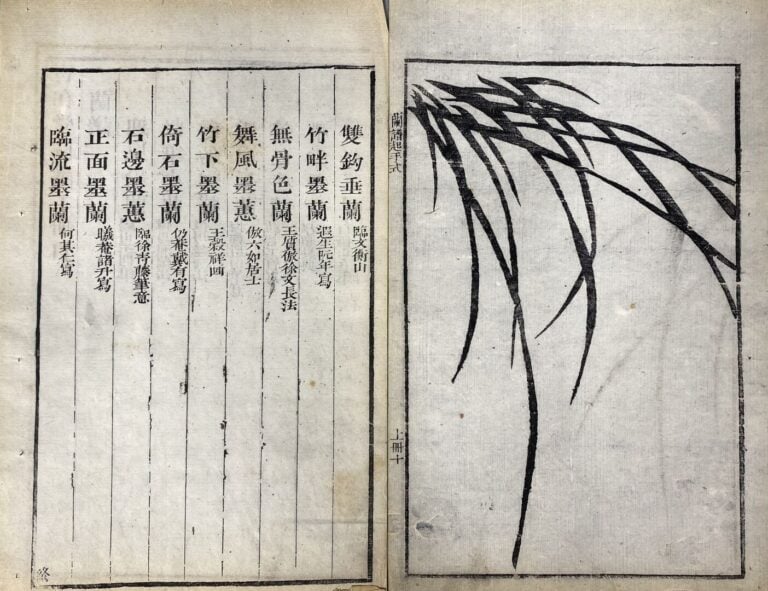 蘭譜起手式
上冊十
雙鈎垂蘭 臨文衡山
竹畔墨蘭 遐生阮年寫
無骨色蘭 王質倣徐文長法
舞風墨蕙 倣六如居士
竹下墨蘭 王穀祥画
倚石墨蘭 仍菴戴有寫
石邊墨蕙 臨徐青藤筆意
正面墨蘭 曦菴諸升寫
臨流墨蘭 何其仁寫
終